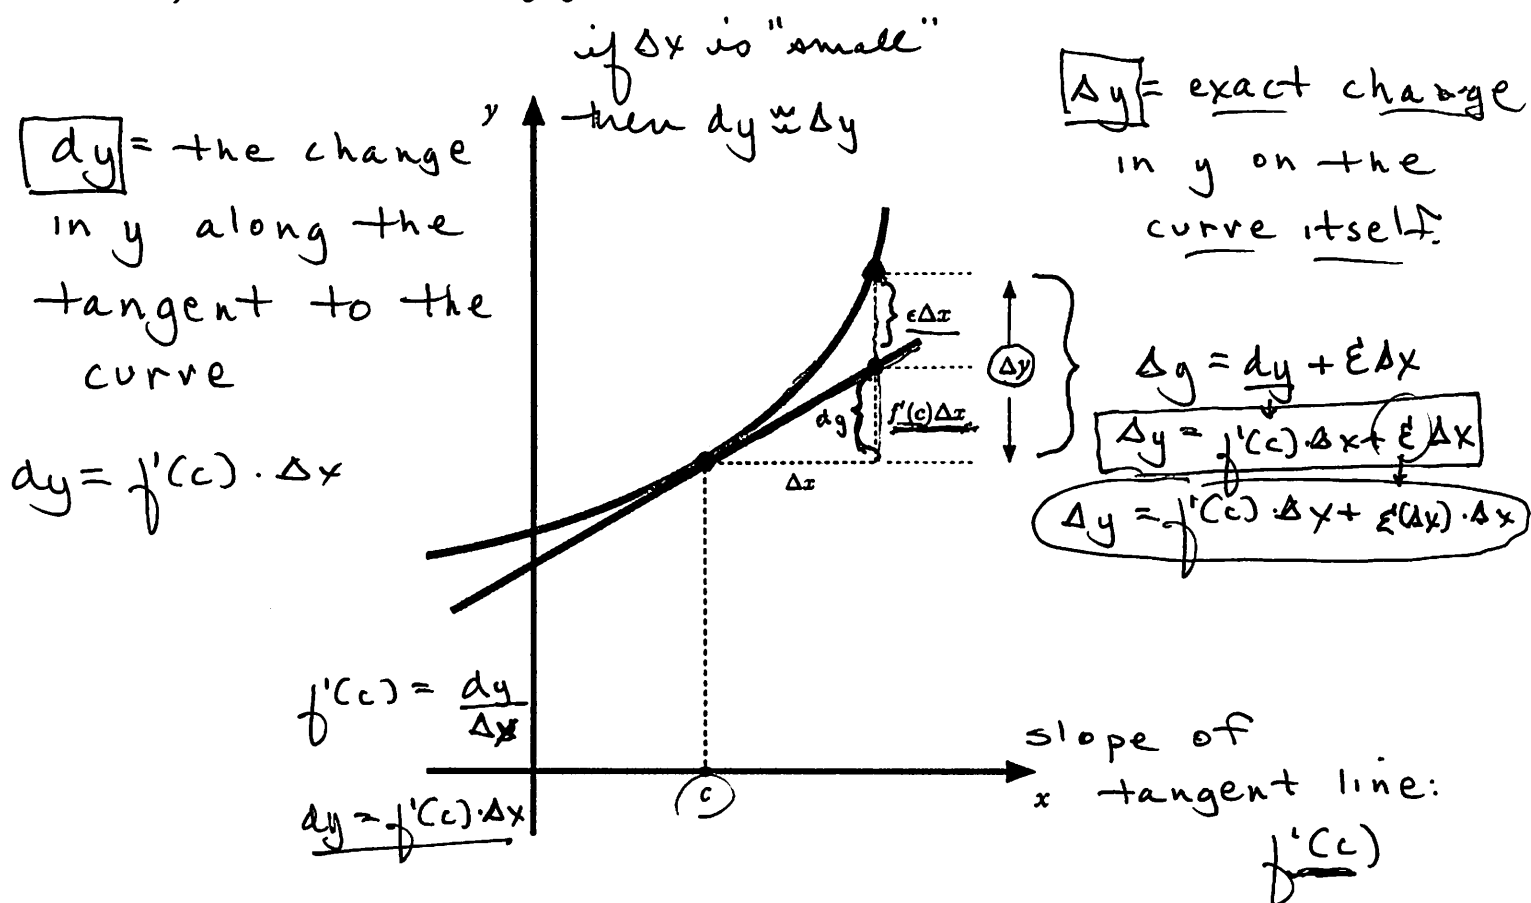 if Δx is "small"
then dy ≈ Δy
dy = the change
in y along the
tangent to the
curve
dy = f'(c) · Δx
Δy = exact change
in y on the
curve itself.
y
εΔx
Δy
dy
f'(c)Δx
Δx
Δy = dy + εΔx
Δy = f'(c)·Δx + εΔx
Δy = f'(c)·Δx + ε(Δx)·Δx
f'(c) = dy/Δx
dy = f'(c)·Δx
c
x
slope of
tangent line:
f'(c)